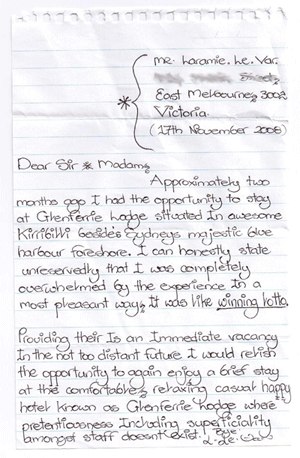 Mr. Laramie. Le. Var.
East Melbourne, 3002
Victoria.
(17th November 2006)
Dear Sir & Madam,
Approximately two
months ago I had the opportunity to stay
at Glenferrie Lodge situated In awesome
Kirribilli besides Sydneys majestic blue
harbour foreshore. I can honestly state
unreservedly that I was completely
overwhelmed by the experience In a
most pleasant way, It was like winning lotto.
Providing their Is an Immediate vacancy
In the not too distant future I would relish
the opportunity to again enjoy a brief stay
at the comfortable, relaxing casual happy
hotel known as Glenferrie Lodge where
pretentiousness Including superficiality
amongst staff doesnt exist. Bye.